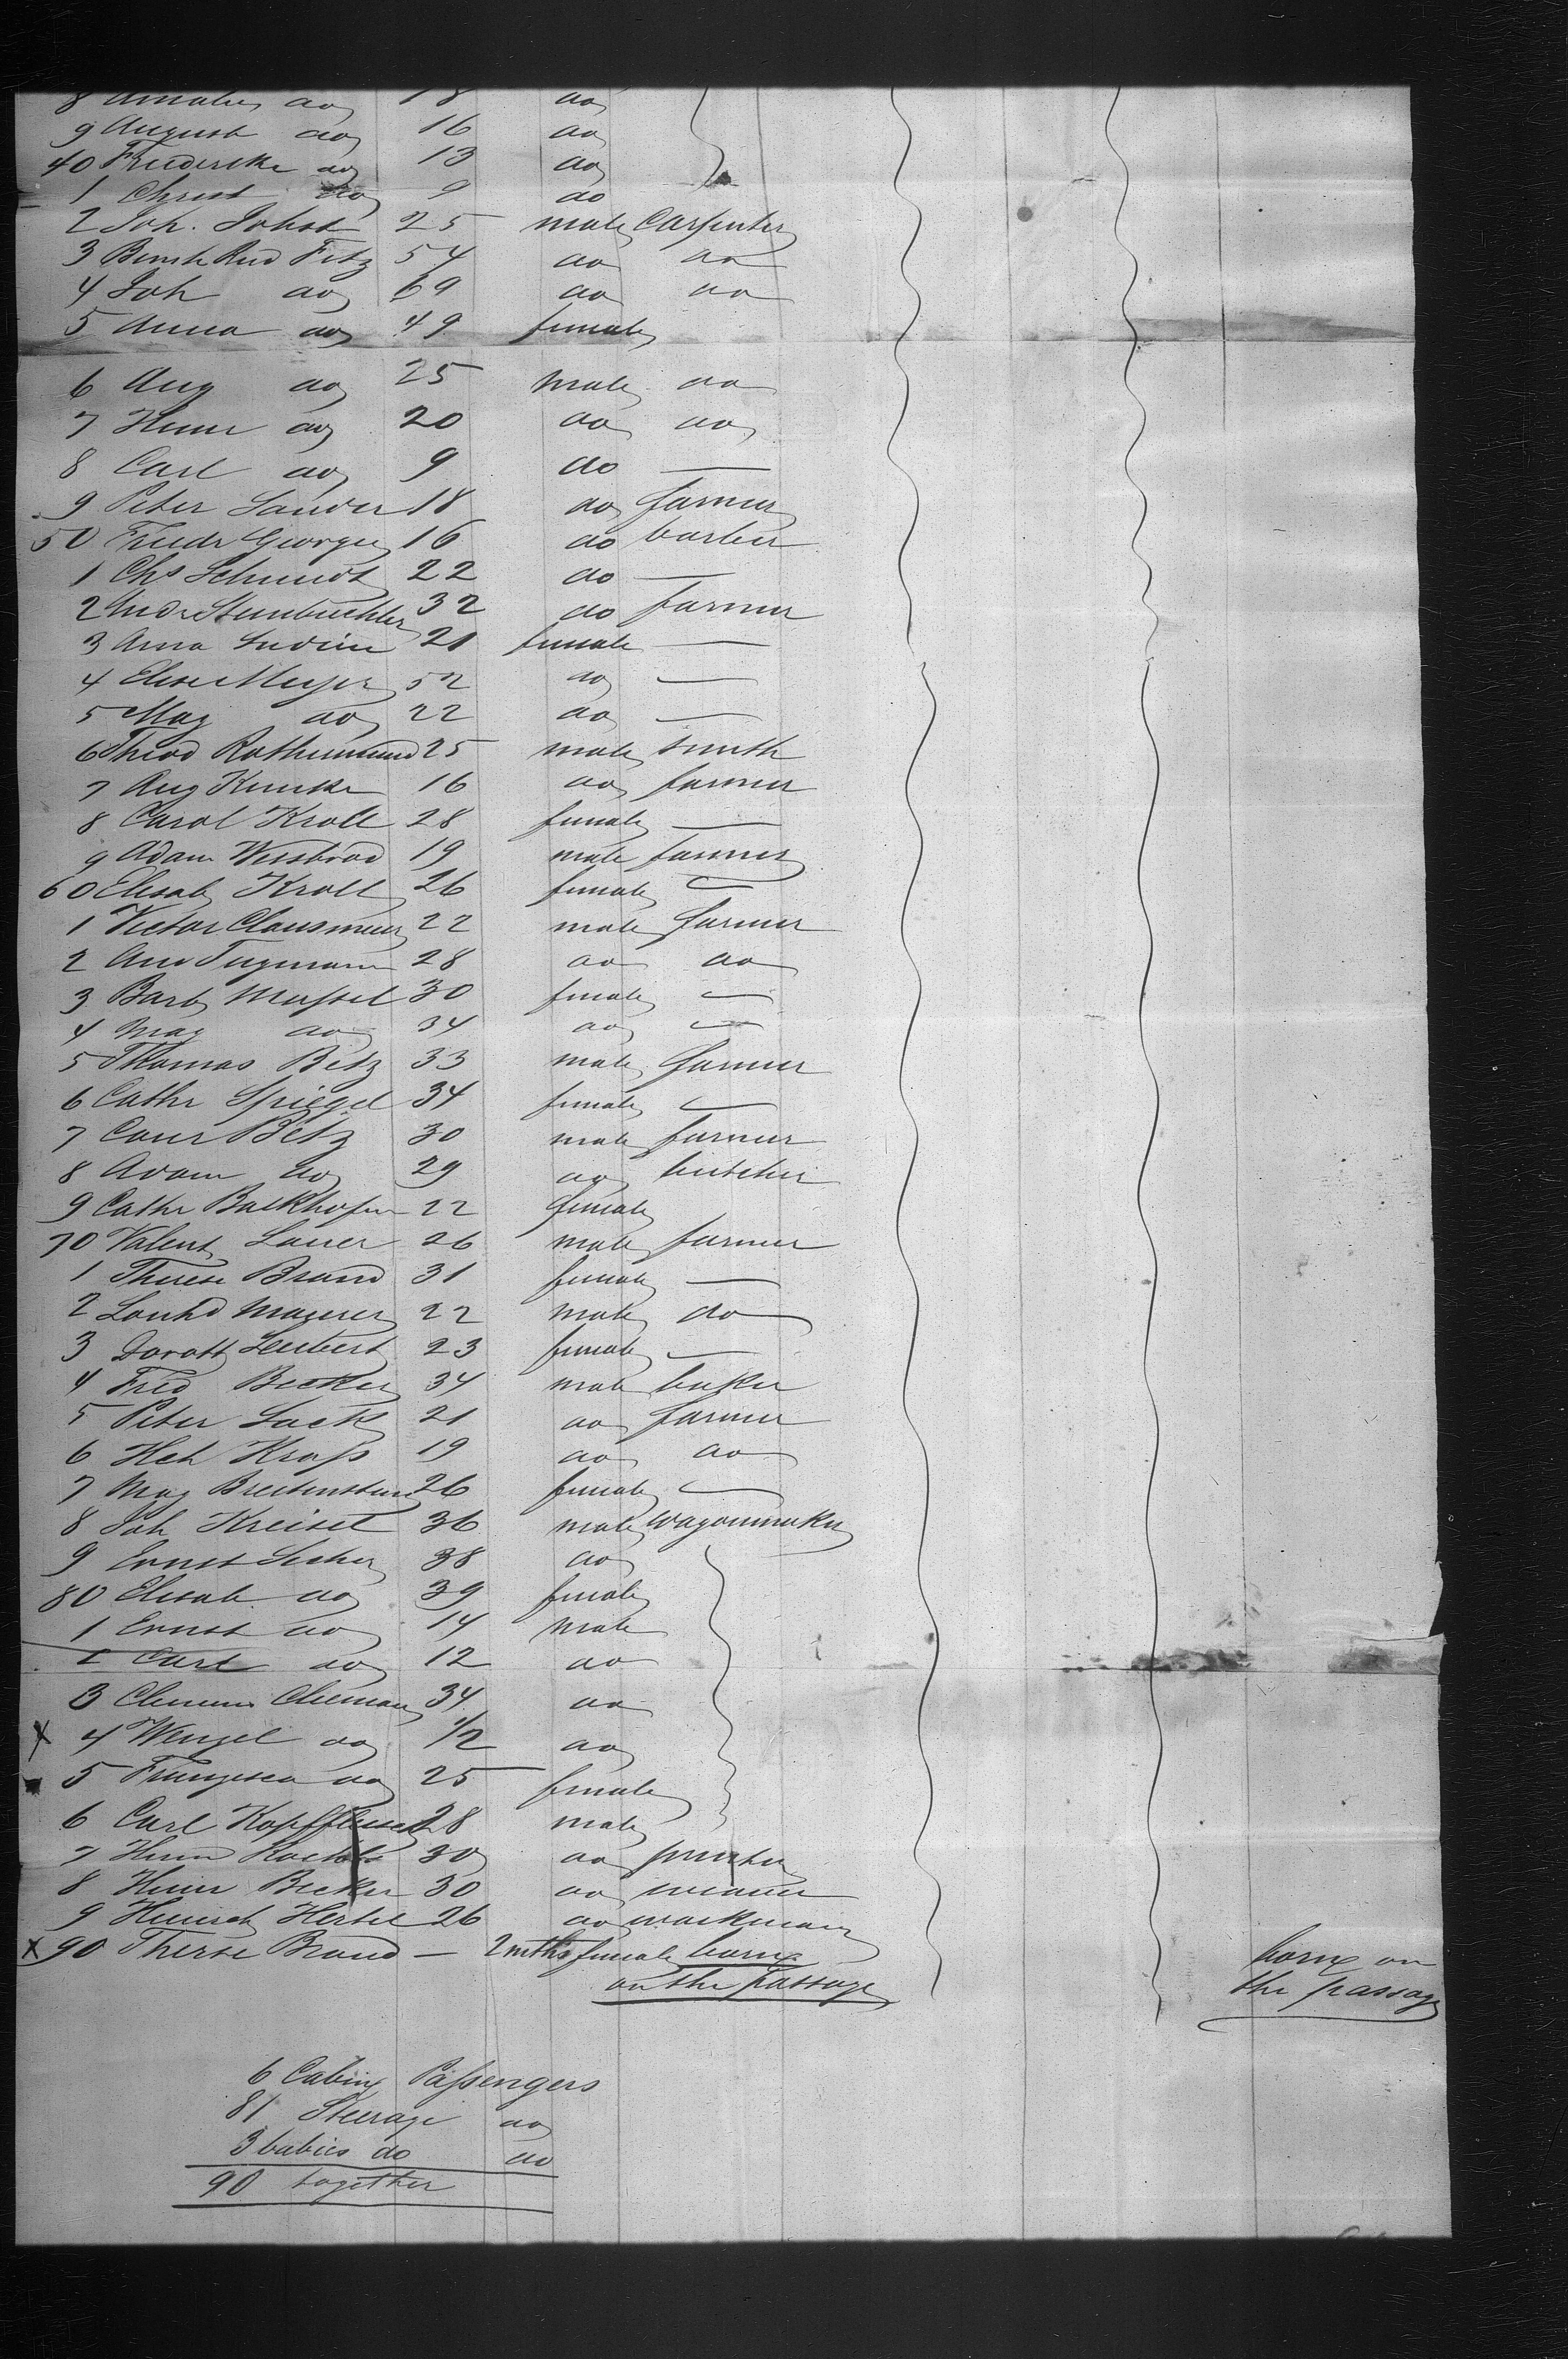 8 Amalie do 18 do
9 August do 16 do
40 Friederike do 13 do
1 Christ do 9 do
2 Joh. Johst 25 male Carpenter
3 Fitz 54 do do
4 Joh do 69 do do
5 Anna do 49 female
6 Aug do 25 male do
7 Henr do 20 do do
8 Carl do 9 do —
9 Peter Sander 18 do farmer
50 Friedr George 16 do barber
1 Chs Schmidt 22 do —
2 Andr Steinbuchler 32 do farmer
3 Anna 21 female —
4 Elise Meyer 52 do —
5 Mag do 22 do —
6 Theod Rothemund 25 male smith
7 Aug Kunske 16 do farmer
8 Carol Kroll 28 female —
9 Adam Weisbrod 19 male farmer
60 Elisab Kroll 26 female —
1 Victor Clausmeier 22 male farmer
2 And Tugmann 28 do do
3 Barb Mussel 30 female —
4 Mag do 34 do —
5 Thomas Betz 33 male farmer
6 Cathr Spiegel 34 female —
7 Conr Betz 30 male farmer
8 Adam do 29 do butcher
9 Cathr Backhofen 22 female
70 Valent Lauer 26 male farmer
1 Therese Brand 31 female —
2 Leonhd Maurer 22 male do
3 Doroth Leibert 23 female —
4 Fred Becker 34 male baker
5 Peter Lack 21 do farmer
6 Hch Krass 19 do do
7 Mag Breitenstein 26 female —
8 Joh Kreisel 36 male wagonmaker
9 Ernst 38 do
80 Elisab do 39 female
1 Ernst do 14 male
2 Carl do 12 do
3 Clemens 34 do
X 4 Wenzel do 1/2 do
5 Franzisca do 25 female
6 Carl Kopffleisch 28 male
7 Herm 30 do printer
8 Henr Becker 30 do weaver
9 Heinrich Hertel 26 do workman
X 90 Therse Brand — 2 mths female born
on the passage
born on
the passage
6 Cabin Passengers
81 Steerage do
3 babies do do
90 together